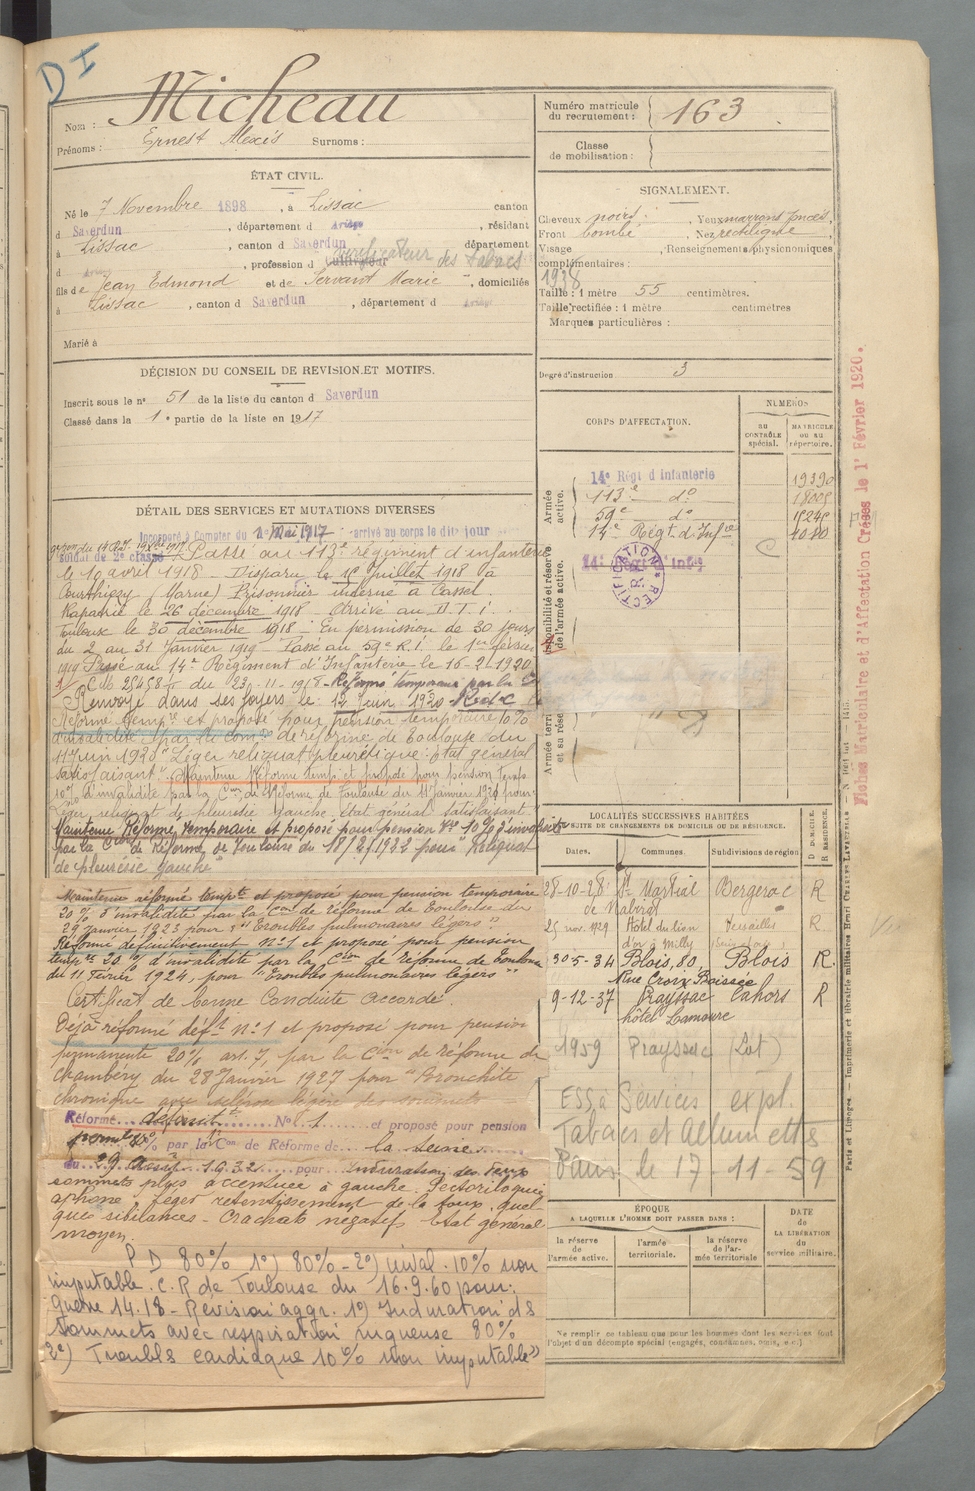 D I
Nom : Micheau
Prénoms : Ernest Alexis Surnoms :
Numéro matricule du recrutement : 163
Classe de mobilisation :
ÉTAT CIVIL.
Né le 7 Novembre 1898, à Lissac canton
d Saverdun, département d Ariège, résidant
à Lissac, canton d Saverdun département
d Ariège, profession d Cultivateur Vérificateur des tabacs
fils de Jean Edmond et de Servant Marie, domiciliés
à Lissac, canton d Saverdun, département d Ariège
Marié à
SIGNALEMENT.
Cheveux noirs, Yeux marrons foncés,
Front bombé, Nez rectiligne
Visage, Renseignements physionomiques
complémentaires :
1938
Taille : 1 mètre 55 centimètres.
Taille rectifiée : 1 mètre centimètres
Marques particulières :
Degré d'instruction 3
DÉCISION DU CONSEIL DE REVISION ET MOTIFS.
Inscrit sous le n° 51 de la liste du canton d Saverdun
Classé dans la 1e partie de la liste en 1917
DÉTAIL DES SERVICES ET MUTATIONS DIVERSES
Incorporé à compter du 1 Mai 1917 arrivé au corps le dit jour
soldat de 2e classe Passé au 113e régiment d'infanterie
le 10 avril 1918 - Disparu le 15 Juillet 1918 à
Courthiézy (Marne) Prisonnier interné à Cassel.
Rapatrié le 26 décembre 1918 - Arrivé au D.T.i.
Toulouse le 30 décembre 1918 - En permission de 30 jours
du 2 au 31 Janvier 1919 - Passé au 59e R.I. le 1er février
1919 Passé au 14e Régiment d'Infanterie le 16-2-1920
Renvoyé dans ses foyers le 12 Juin 1920
Réforme tempre et proposé pour pension temporaire 10%
d'invalidité par la Comon de réforme de Toulouse du
11 Juin 1920 "Léger reliquat pleurétique : état général
satisfaisant." Maintenu Réforme temp. et proposé pour pension temp.
10% d'invalidité par la Con de Réforme de Toulouse du 11 Janvier 1921 pour
"Léger reliquat de pleurésie gauche état général satisfaisant."
Maintenu Réforme temporaire et proposé pour pension tre 10% d'invalidité
par la Con de Réforme de Toulouse du 18/2/1922 pour "Reliquat
de pleurésie gauche"
Maintenu réformé tempre et proposé pour pension temporaire
20% d'invalidité par la Con de réforme de Toulouse du
29 janvier 1923 pour : "Troubles pulmonaires légers"
Réformé définitivement N°1 et proposé pour pension
tempre 20% d'invalidité par la Con de Réforme de Toulouse
du 11 Février 1924, pour "Troubles pulmonaires légers"
Certificat de bonne Conduite accordé.
Déjà réformé déft n°1 et proposé pour pension
permanente 20% art. 7, par la Con de réforme de
Chambéry du 28 Janvier 1927 pour "Bronchite
chronique avec sclérose légère des sommets
Réformé définitt N° 1 et proposé pour pension
% par la Con de Réforme de la Seine
du 29 1932 pour Induration des deux
sommets plus accentuée à gauche. Pectoriloquie
aphone, léger retentissement de la toux, quel
ques sibilances - Crachats négatifs Etat général
moyen.
P D 80% 1°) 80% - 2°) inval. 10% non
imputable. C.R de Toulouse du 16.9.60 pour :
guerre 14.18 - Révision aggr. 1°) Induration ds
sommets avec respiration rugueuse 80%
2°) Troubls cardiaque 10% non imputable"
CORPS D'AFFECTATION.
NUMÉROS
AU CONTRÔLE SPÉCIAL.
MATRICULE OU AU RÉPERTOIRE.
Armée active.
14e Régt d'infanterie 19390
113e do 18005
59e do
14e Régt d'Infrie 4040
Disponibilité et réserve de l'armée active.
14e Régt d'infie
RECTIFICATION
Armée territ et sa rése
LOCALITÉS SUCCESSIVES HABITÉES
PAR SUITE DE CHANGEMENTS DE DOMICILE OU DE RÉSIDENCE.
Dates. Communes. Subdivisions de région D. DOMICILE. R. RÉSIDENCE.
28-10-28 St Martial Bergerac R
de Nabirat
25 nov. 1929 Hôtel du lion Versailles R.
d'or à Milly
30-5-34 Blois, 80, Blois R.
Rue Croix Boissée
9-12-37 Prayssac Cahors R
hôtel Lamoure
1959 Prayssac (Lot)
Services expl.
Tabacs et Allumetts
Paris le 17-11-59
ÉPOQUE
A LAQUELLE L'HOMME DOIT PASSER DANS :
la réserve de l'armée active.
l'armée territoriale.
la réserve de l'armée territoriale
DATE de LA LIBÉRATION du service militaire.
Ne remplir ce tableau que pour les hommes dont les services font
l'objet d'un décompte spécial (engagés, condamnés, omis, etc.)
Fiches Matriculaire et d'Affectation Créées le 1er Février 1920.
Paris et Limoges. — Imprimerie et librairie militaires Henri CHARLES-LAVAUZELLE